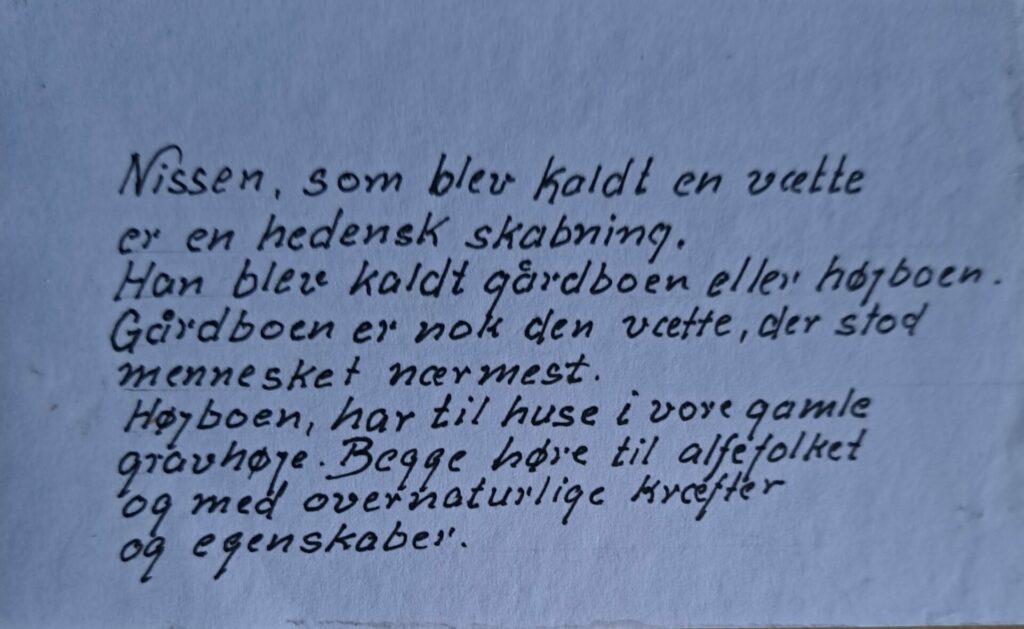 Nissen, som blev kaldt en vætte
er en hedensk skabning.
Han blev kaldt gårdboen eller højboen.
Gårdboen er nok den vætte, der stod
mennesket nærmest.
Højboen, har til huse i vore gamle
gravhøje. Begge høre til alfefolket
og med overnaturlige kræfter
og egenskaber.